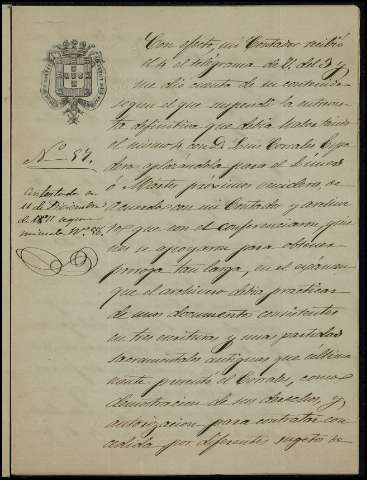 Con efecto, mi Contador recibió
el 4 el telégrama de V. del 3 y
me dió cuenta de su contenido
segun el que suspendí la entrevis-
ta definitiva que debia haber tenido
el mismo 4 con D. Luis Corrales
aplazándola para el Lúnes
ó Martes próximos venideros, de
acuerdo con mi Contador y archive-
ro que con el conferenciaron, que
nos se apoyaron para obtener
proroga tan larga, en el exámen
que el archivero debia practicar
de unos documentos consistentes
en tres escrituras y unas partidas
sacramentales antiguas que última-
mente presentó el Corrales, como
demostracion de sus derechos, y
autorizacion para contratar con-
cedida por diferentes sugetos
Nº 57.
Contestada en
11 de Diciembre
de 1871
minuta Nº 86.